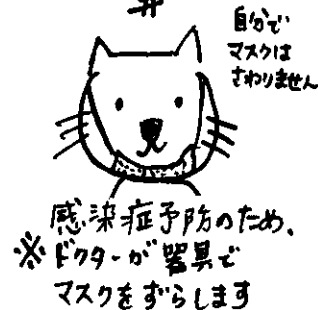 自分で
マスクは
さわりません
感染症予防のため、
※ドクターが器具で
マスクをずらします